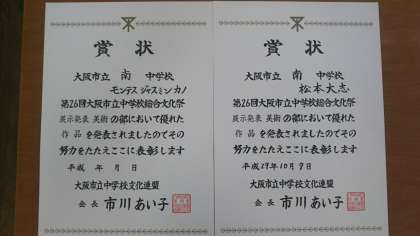 賞状
大阪市立 南 中学校
モンテス ジャスミン カノ
第26回大阪市立中学校総合文化祭
展示発表 美術 の部において優れた
作品 を発表されましたのでその
努力をたたえここに表彰します
平成 年 月 日
大阪市立中学校文化連盟
会長 市川 あい子
賞状
大阪市立 南 中学校
松本大志
第26回大阪市立中学校総合文化祭
展示発表 美術 の部において優れた
作品 を発表されましたのでその
努力をたたえここに表彰します
平成29年10月9日
大阪市立中学校文化連盟
会長 市川 あい子